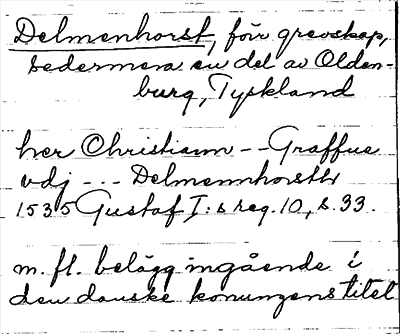 Delmenhorst, förr grevskap,
sedermera en del av Olden-
burg, Tyskland
her Christiann -- Graffue
vdj --- Delmennhorsth
1535 Gustaf I:s reg. 10, s. 33.
m. fl. belägg ingående i
den danske konungens titel